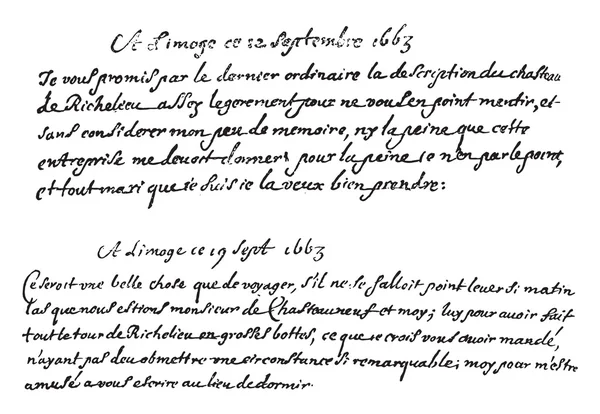 A Limoge ce 12 septembre 1663
Je vous promis par le dernier ordinaire la description du chasteau
de Richelieu assez legerement pour ne vous en point mentir, et
sans considerer mon peu de memoire, ny la peine que cette
entreprise me devoit donner, pour la peine ie n'en parle point,
et tout mari que ie suis ie la veux bien prendre:
A Limoge ce 19 sept 1663
Ce seroit vne belle chose que de voyager, s'il ne se falloit point leuer si matin
las que nous estions monsieur de Chasteauneuf et moy; luy pour auoir fait
tout le tour de Richelieu en grosses bottes, ce que ie crois vous auoir mandé,
n'ayant pas deu obmettre vne circonstance si remarquable; moy pour m'estre
amusé a vous escrire au lieu de dormir.